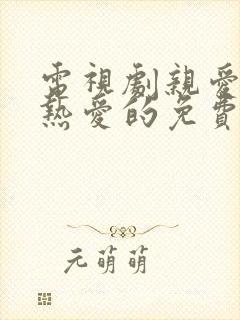 電視劇親愛
熱愛的免費
元萌萌